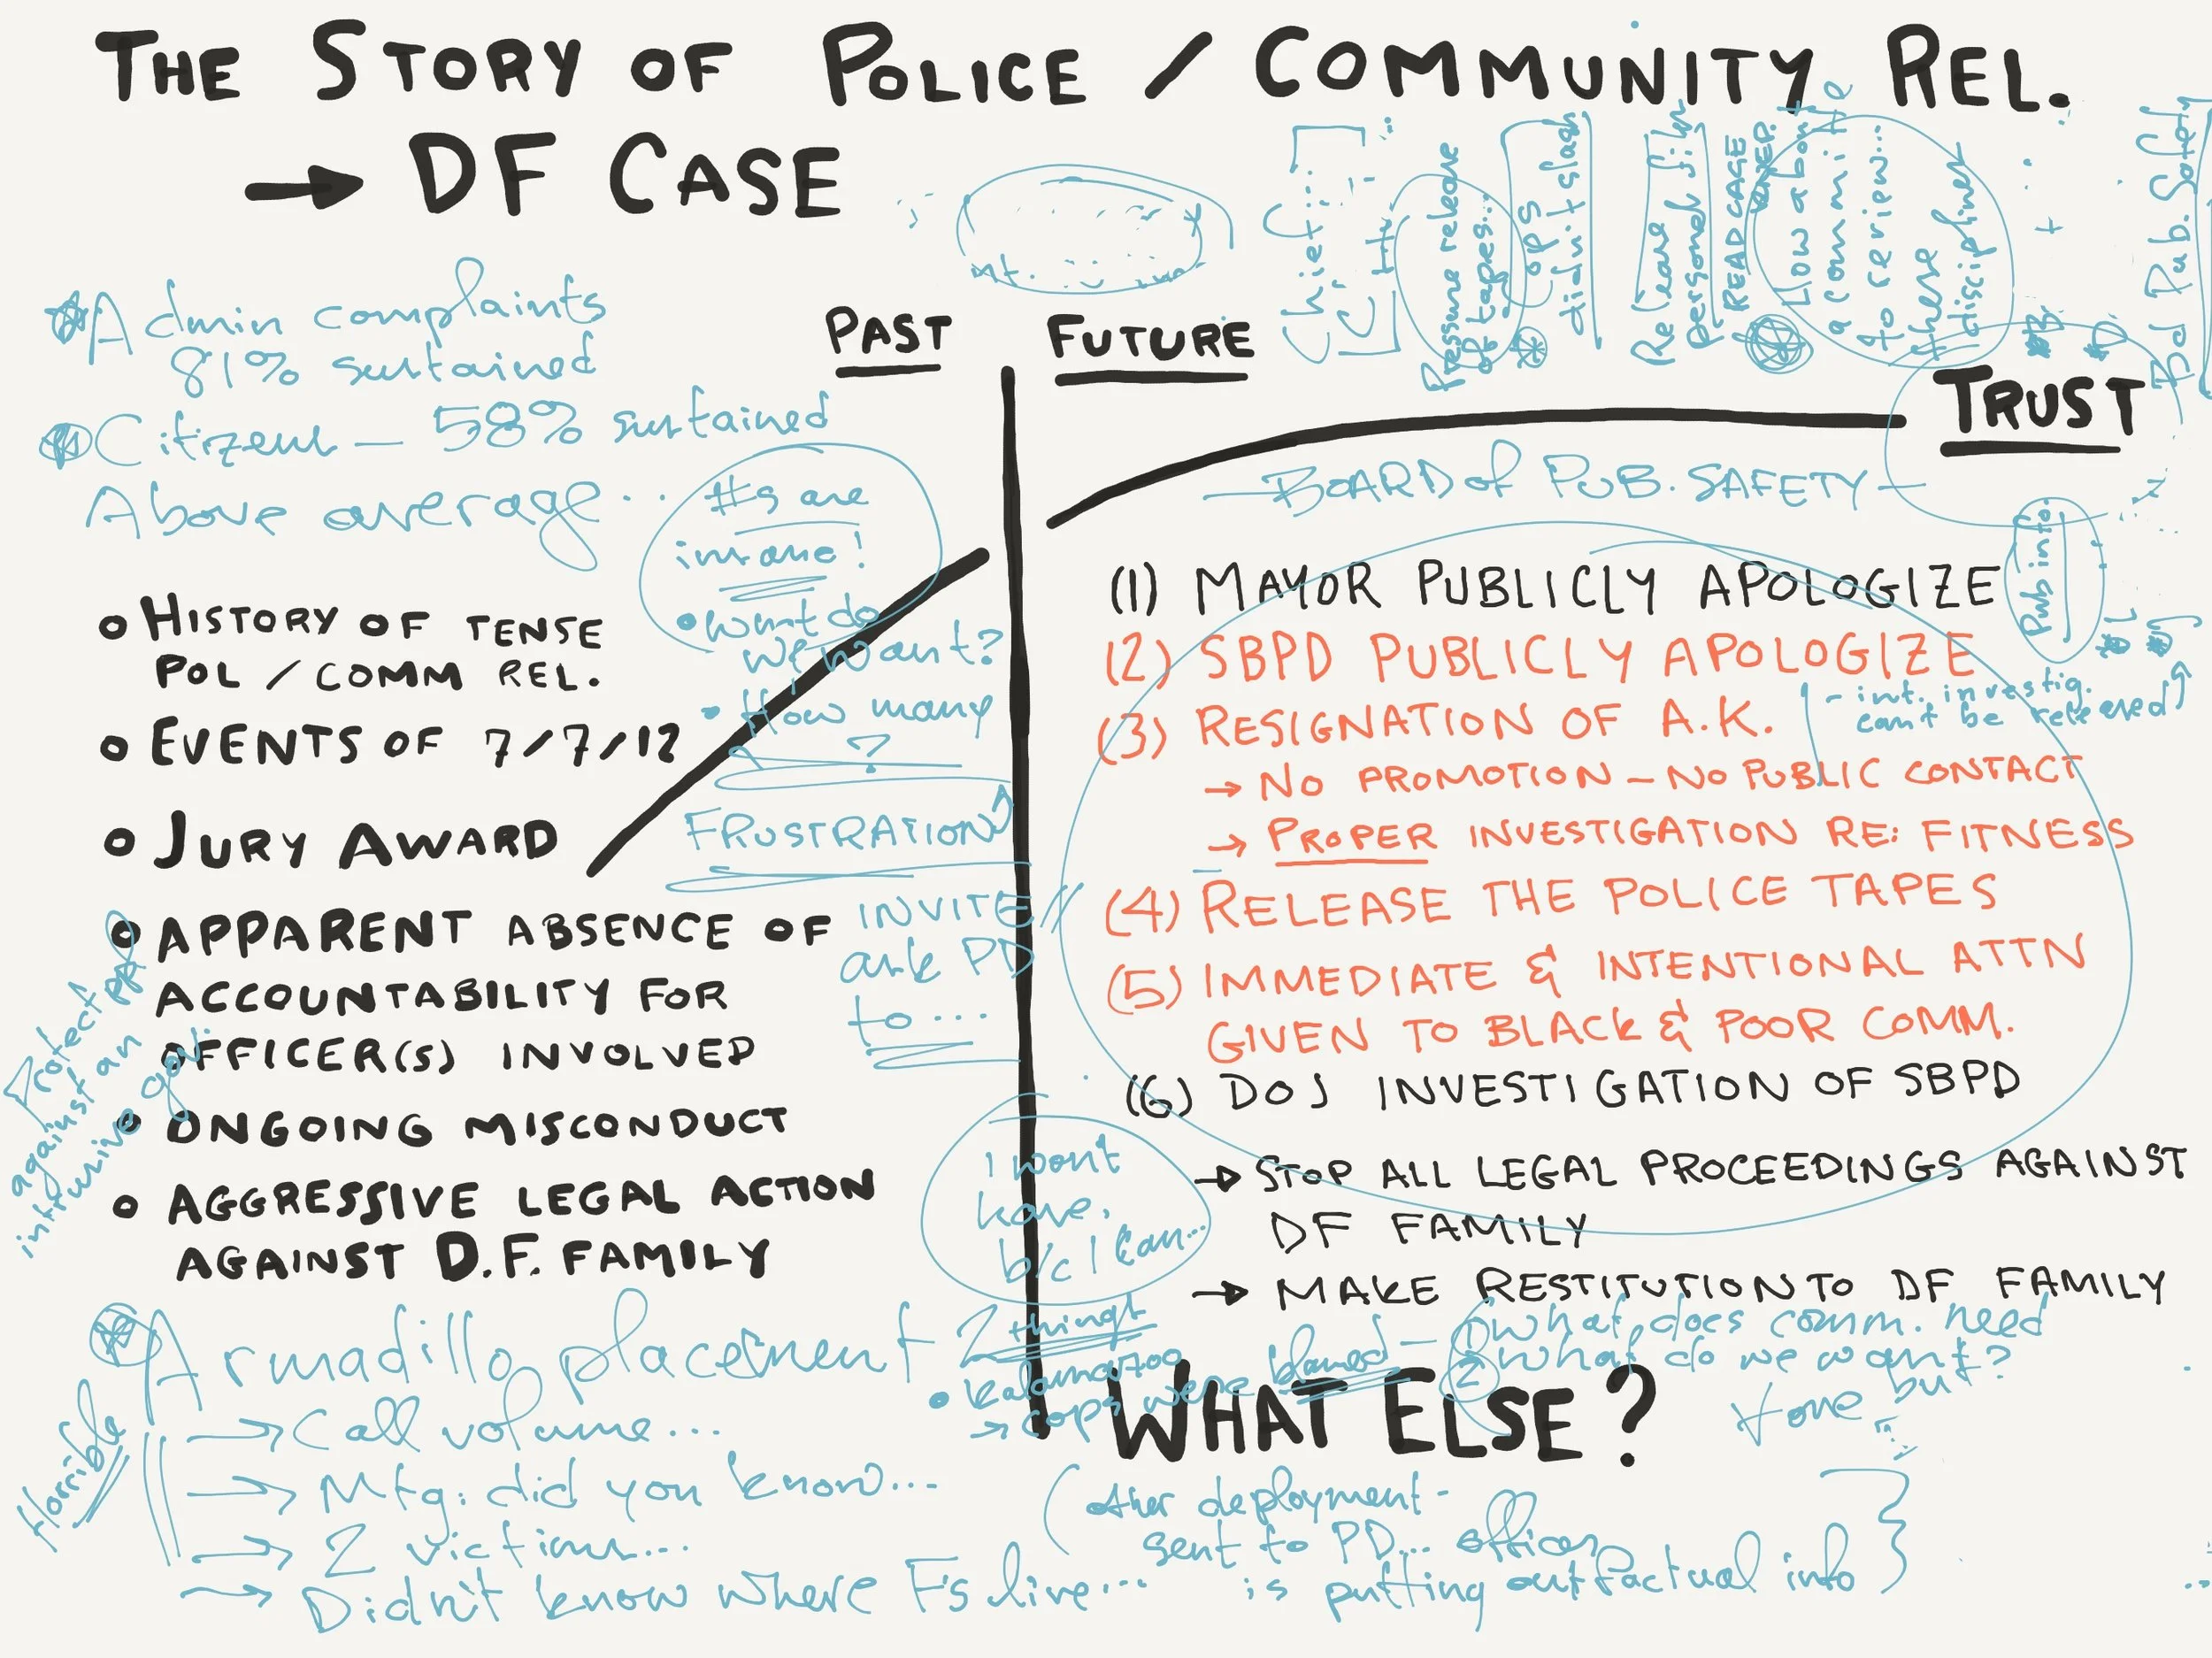 THE STORY OF POLICE / COMMUNITY REL.
→ DF CASE
Chief...
Pressure release
of tapes...
cops
didn't slash
Release film
personal
READ CASE
How about
a committee
to review...
these
disciplines
Bd Pub. Safety
Admin complaints
81% sustained
Citizens — 58% sustained
Above average...
#s are
insane!
• What do
we want?
• How many
?
FRUSTRATION
INVITE //
ask PD
to....
PAST
FUTURE
TRUST
— BOARD of PUB. SAFETY —
• HISTORY OF TENSE
POL / COMM REL.
• EVENTS OF 7/7/12
• JURY AWARD
• APPARENT ABSENCE OF
ACCOUNTABILITY FOR
OFFICER(S) INVOLVED
• ONGOING MISCONDUCT
• AGGRESSIVE LEGAL ACTION
AGAINST D.F. FAMILY
Protect
against an
intrusive gov.
(1) MAYOR PUBLICLY APOLOGIZE
Pub info
(2) SBPD PUBLICLY APOLOGIZE
- int. investig.
can't be released
(3) RESIGNATION OF A.K.
→ NO PROMOTION – NO PUBLIC CONTACT
→ PROPER INVESTIGATION RE: FITNESS
(4) RELEASE THE POLICE TAPES
(5) IMMEDIATE & INTENTIONAL ATTN
GIVEN TO BLACK & POOR COMM.
(6) DOJ INVESTIGATION OF SBPD
→ STOP ALL LEGAL PROCEEDINGS AGAINST
DF FAMILY
→ MAKE RESTITUTION TO DF FAMILY
I won't
have,
b/c I can...
Armadillo placement
Horrible
→ Call volume...
→ Mtg: did you know...
→ 2 victims...
→ Didn't know where F's live...
2 things
• Kalamazoo
→ cops were blamed —
① What does comm. need
② What do we want?
tone but
WHAT ELSE?
(other deployment -
sent to PD... officer
is putting out factual info